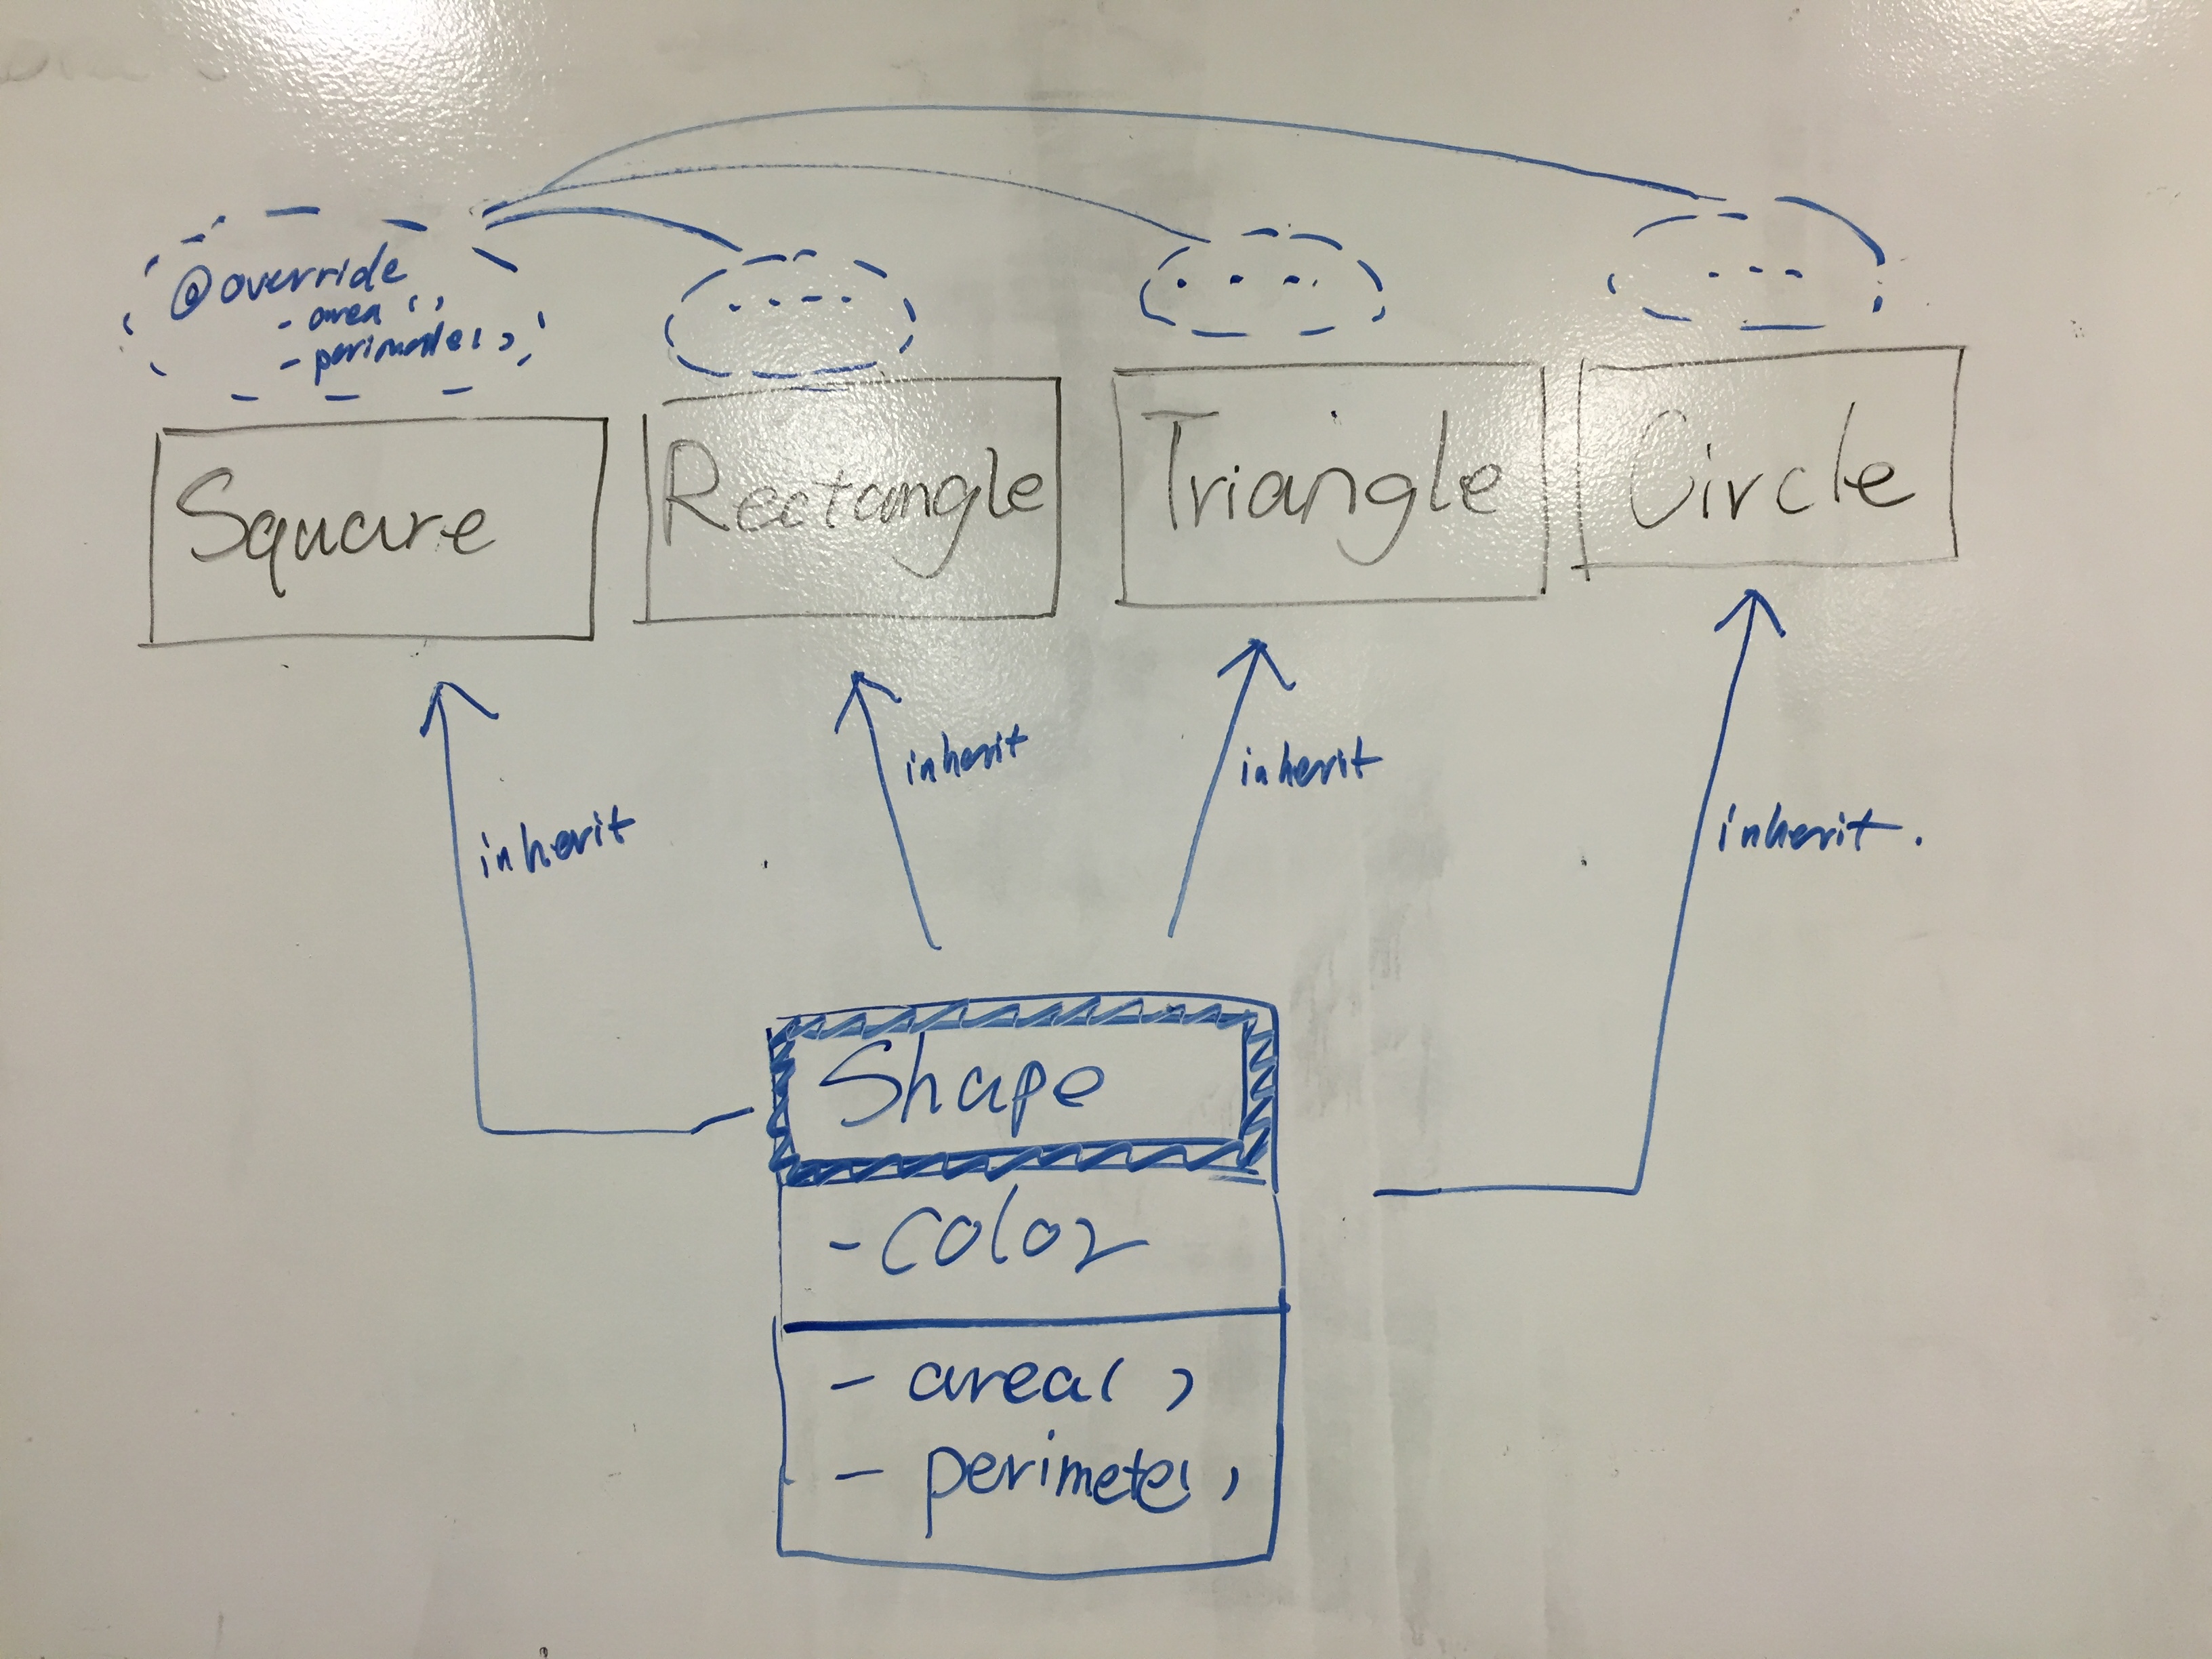 @override
- area ()
- perimete()
....
....
...
Square
Rectangle
Triangle
Circle
inherit
inherit
inherit
inherit.
Shape
- color
- area()
- perimete()